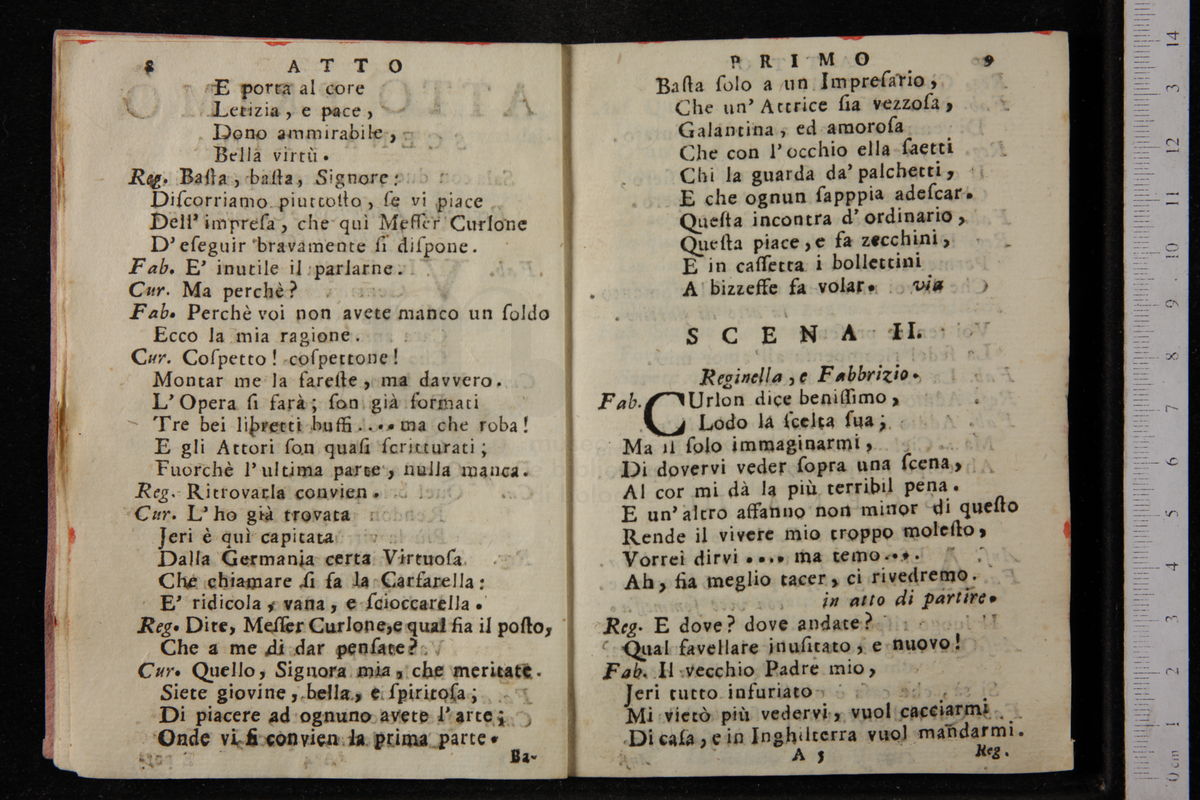 8 ATTO
E porta al core
Letizia, e pace,
Dono ammirabile,
Bella virtù.
Reg. Baſta, baſta, Signore:
Diſcorriamo piuttoſto, ſe vi piace
Dell' impreſa, che quì Meſſer Curlone
D' eſeguir bravamente ſi diſpone.
Fab. E' inutile il parlarne.
Cur. Ma perchè?
Fab. Perchè voi non avete manco un ſoldo
Ecco la mia ragione.
Cur. Coſpetto! coſpettone!
Montar me la fareſte, ma davvero.
L' Opera ſi farà; ſon già formati
Tre bei libretti buffi.... ma che roba!
E gli Attori ſon quaſi ſcritturati;
Fuorchè l' ultima parte, nulla manca.
Reg. Ritrovarla convien.
Cur. L' ho già trovata
Jeri è quì capitata
Dalla Germania certa Virtuoſa
Che chiamare ſi fa la Carfarella:
E' ridicola, vana, e ſcioccarella.
Reg. Dite, Meſſer Curlone, e qual ſia il poſto,
Che a me di dar penſate?
Cur. Quello, Signora mia, che meritate.
Siete giovine, bella, e ſpiritoſa;
Di piacere ad ognuno avete l' arte;
Onde vi ſi convien la prima parte.
Ba-
PRIMO 9
Baſta ſolo a un Impreſario,
Che un' Attrice ſia vezzoſa,
Galantina, ed amoroſa
Che con l' occhio ella ſaetti
Chi la guarda da' palchetti,
E che ognun ſapppia adeſcar.
Queſta incontra d' ordinario,
Queſta piace, e fa zecchini,
E in caſſetta i bollettini
A bizzeffe fa volar. via
SCENA II.
Reginella, e Fabbrizio.
Fab. CUrlon dice beniſſimo,
Lodo la ſcelta ſua;
Ma il ſolo immaginarmi,
Di dovervi veder ſopra una ſcena,
Al cor mi dà la più terribil pena.
E un' altro affanno non minor di queſto
Rende il vivere mio troppo moleſto,
Vorrei dirvi .... ma temo....
Ah, ſia meglio tacer, ci rivedremo.
in atto di partire.
Reg. E dove? dove andate?
Qual favellare inuſitato, e nuovo!
Fab. Il vecchio Padre mio,
Jeri tutto infuriato
Mi vietò più vedervi, vuol cacciarmi
Di caſa, e in Inghilterra vuol mandarmi.
A 5 Reg.
14
13
12
11
10
9
8
7
6
5
4
3
2
1
0 cm